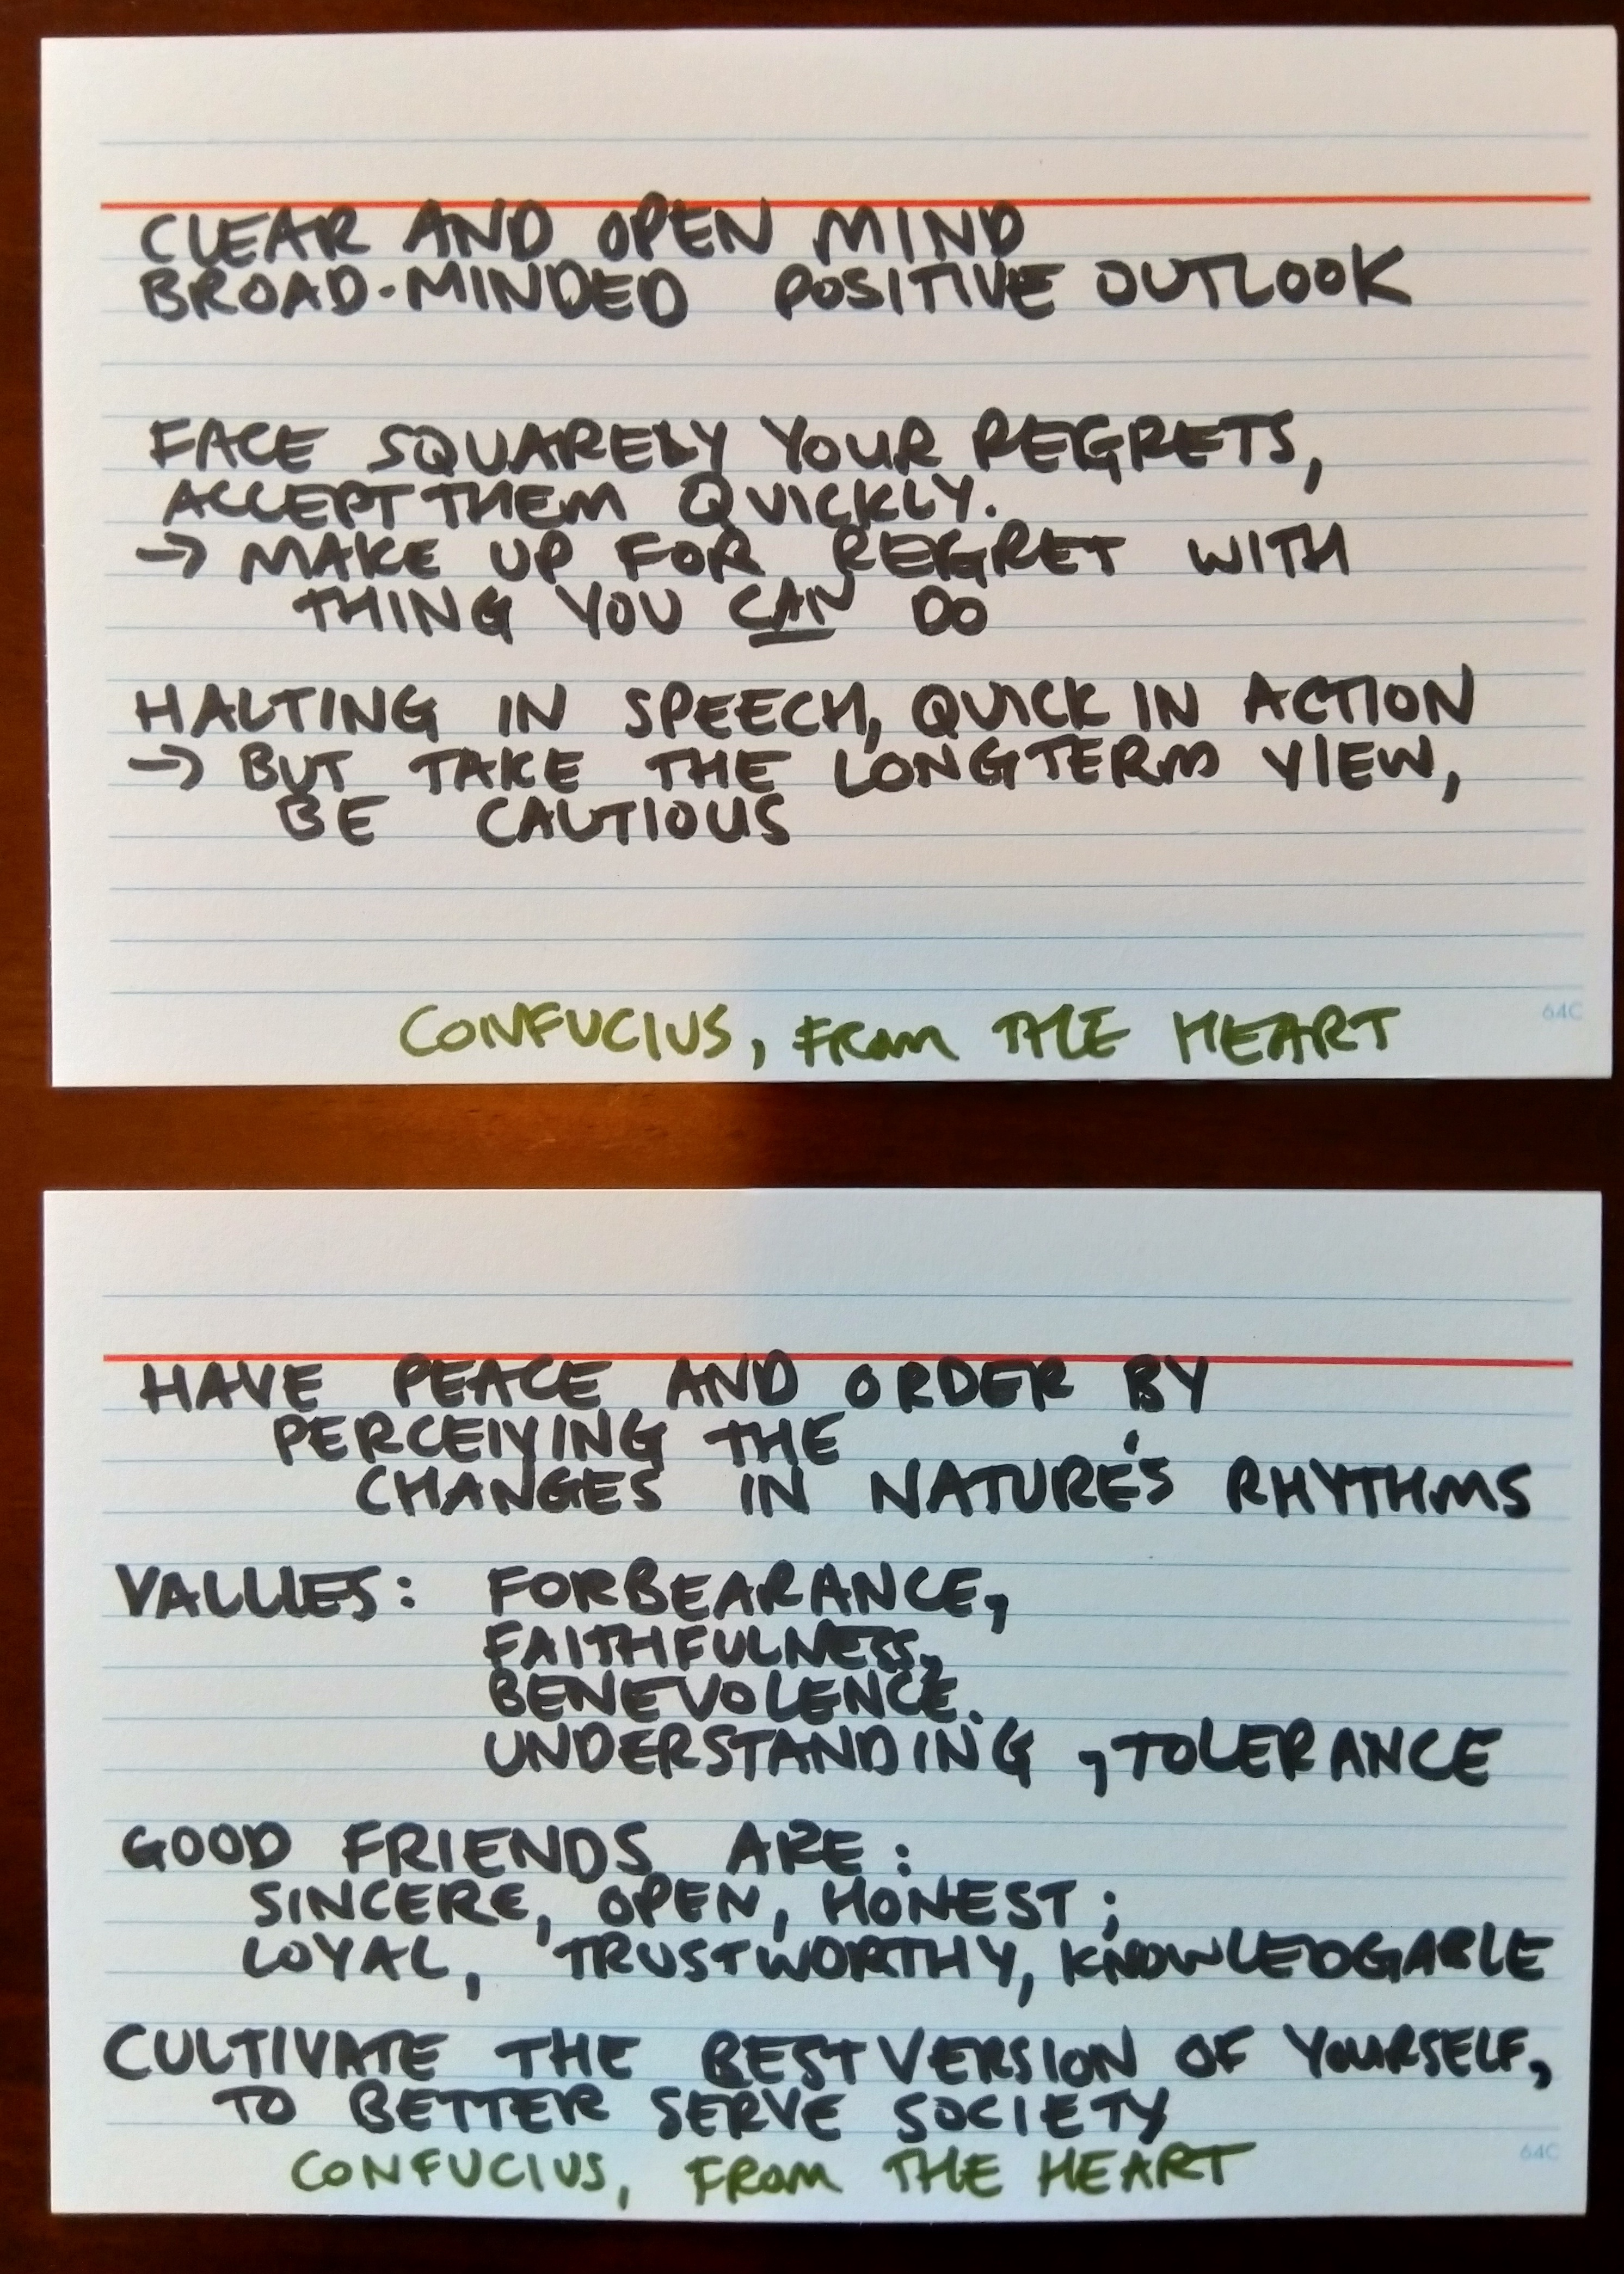 CLEAR AND OPEN MIND
BROAD-MINDED POSITIVE OUTLOOK
FACE SQUARELY YOUR REGRETS,
ACCEPT THEM QUICKLY.
→ MAKE UP FOR REGRET WITH
THING YOU CAN DO
HALTING IN SPEECH, QUICK IN ACTION
→ BUT TAKE THE LONGTERM VIEW,
BE CAUTIOUS
64C
CONFUCIUS, FROM THE HEART
HAVE PEACE AND ORDER BY
PERCEIVING THE
CHANGES IN NATURE'S RHYTHMS
VALUES: FORBEARANCE,
FAITHFULNESS,
BENEVOLENCE.
UNDERSTANDING, TOLERANCE
GOOD FRIENDS ARE:
SINCERE, OPEN, HONEST;
LOYAL, TRUSTWORTHY, KNOWLEDGABLE
CULTIVATE THE BEST VERSION OF YOURSELF,
TO BETTER SERVE SOCIETY
64C
CONFUCIUS, FROM THE HEART